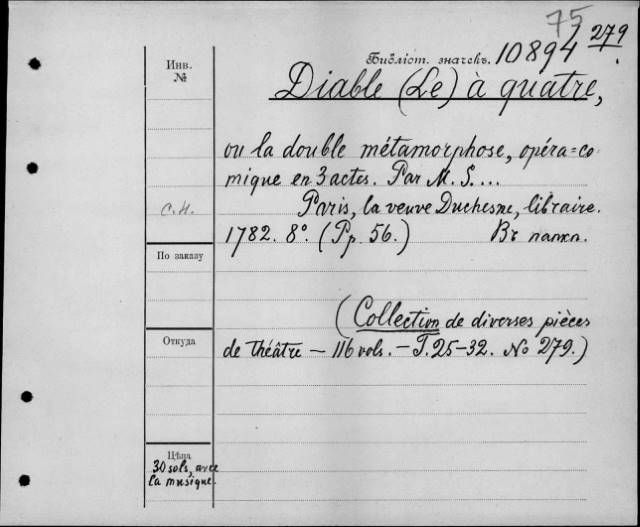 75
279
Библіот. значекъ. 10894
Инв.
№
Diable (Le) à quatre,
ou la double métamorphose, opéra=co
mique en 3 actes. Par M. S....
с.н.
Paris, la veuve Duchesne, libraire.
1782. 8°. (Pp. 56.) Въ папкѣ.
По заказу
(Collection de diverses pièces
Откуда
de théâtre — 116 vols. — T. 25-32. No 279.)
Цѣна
30 sols, avec
la musique.